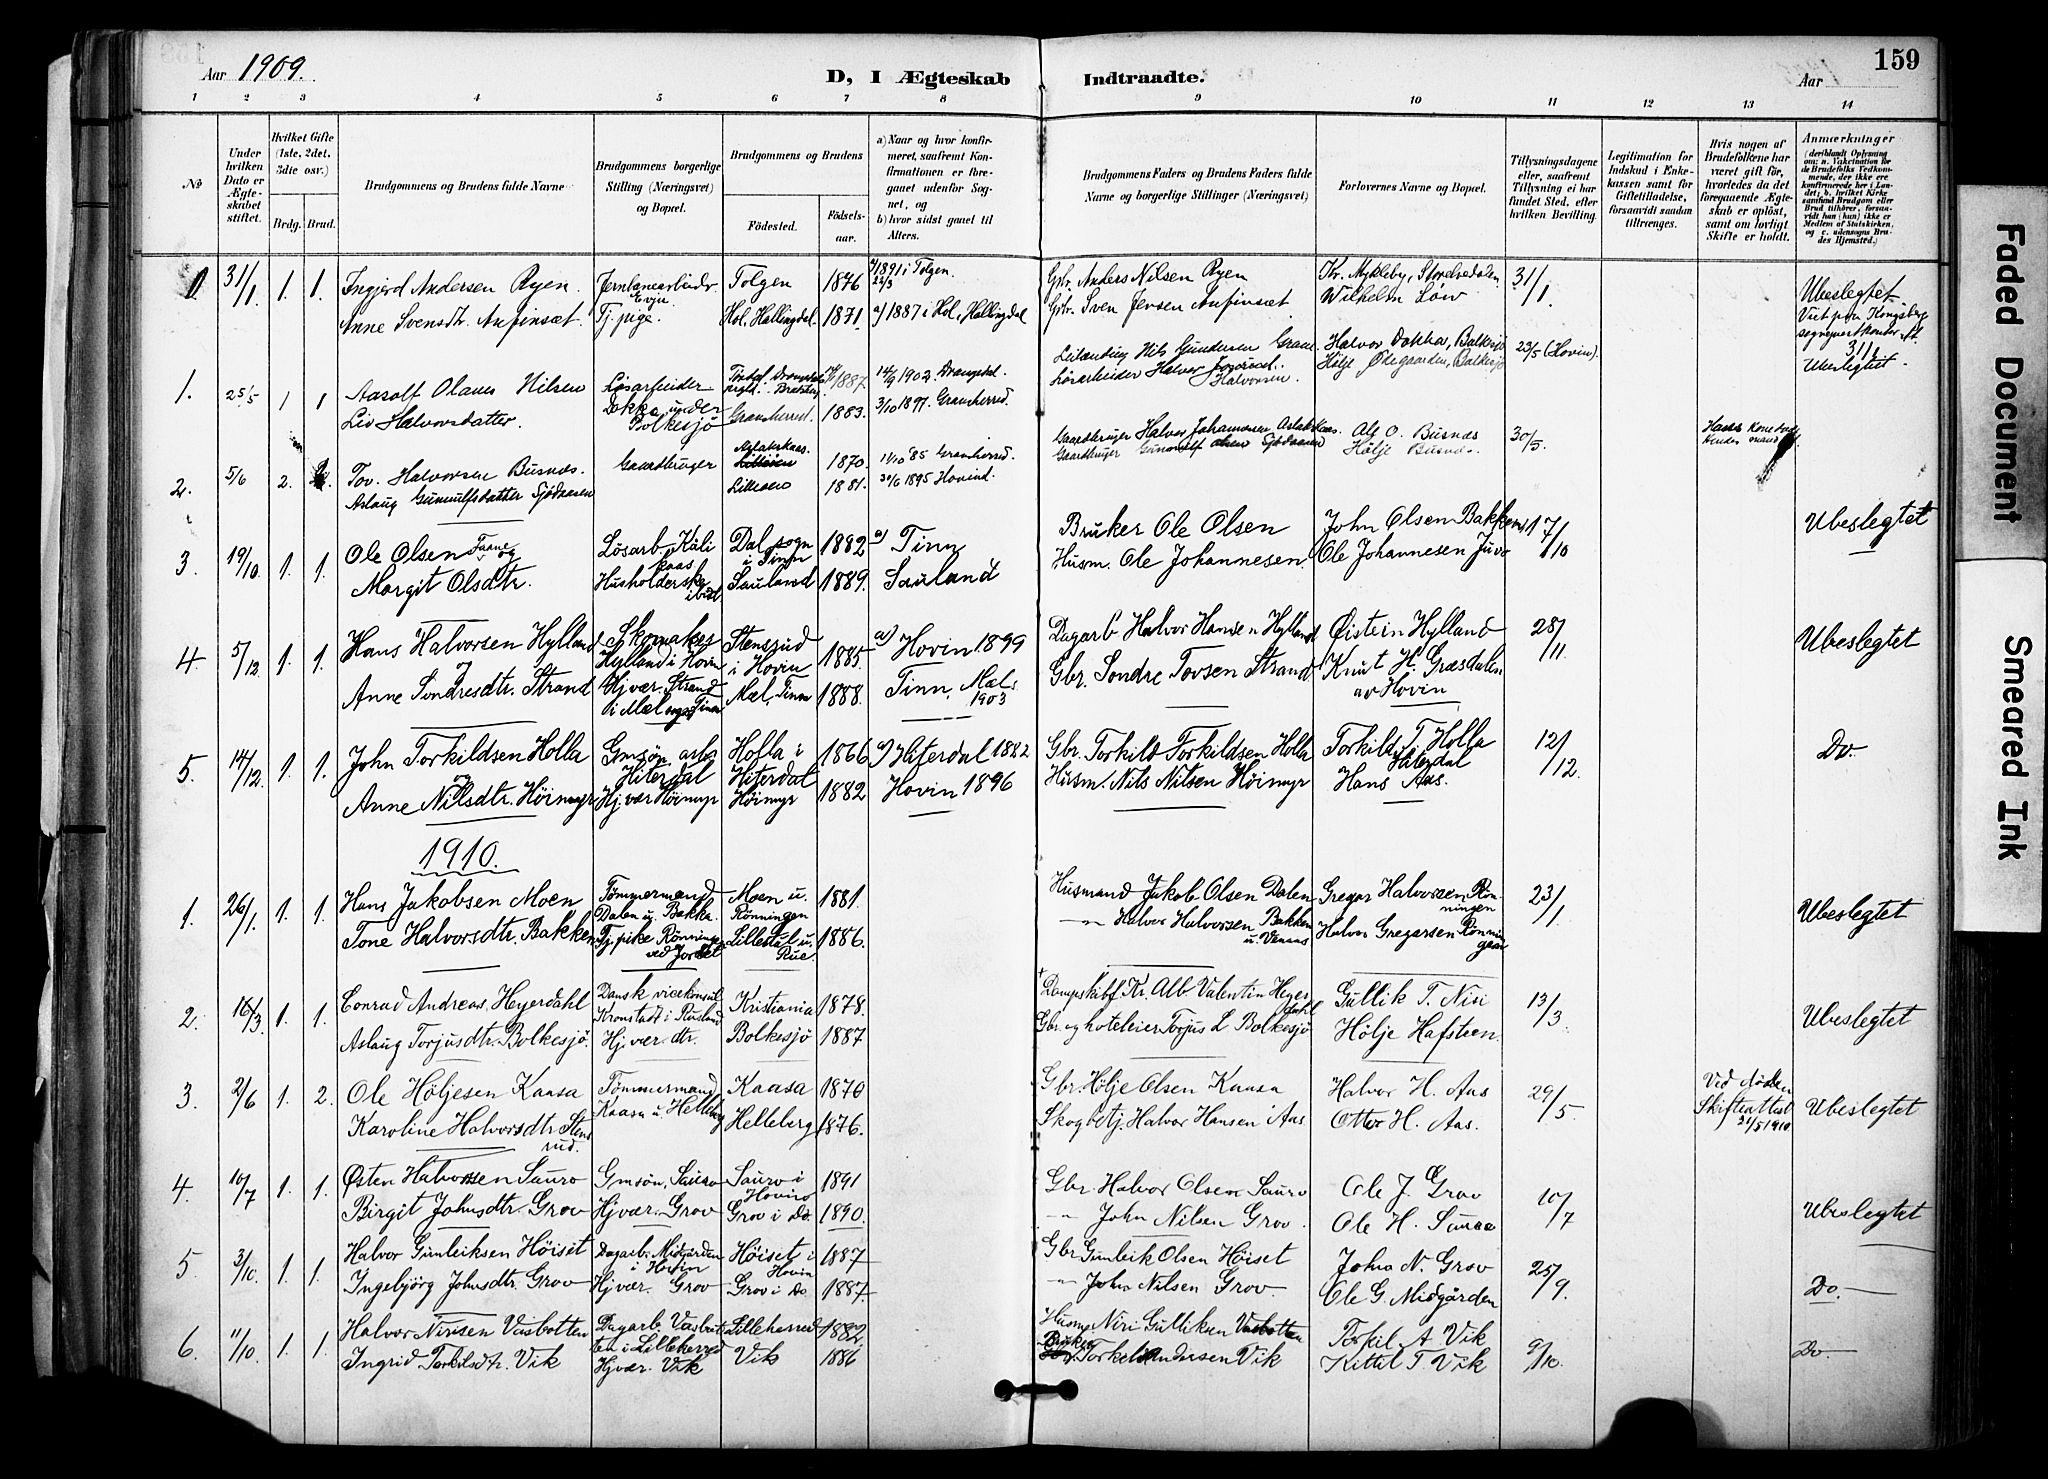 Aar 1909.
D, I Ægteskab Indtraadte.
159
Aar
1 2 3 4 5 6 7 8 9 10 11 12 13 14
No
Under hvilken Dato er Ægteskabet stiftet.
Hvilket Gifte (1ste, 2det, 3die osv.)
Brdg. Brud.
Brudgommens og Brudens fulde Navne
Brudgommens borgerlige Stilling (Næringsvei) og Bopæl.
Brudgommens og Brudens
Fødested.
Fødselsaar.
a) Naar og hvor konfirmeret, saafremt Konfirmationen er foregaaet udenfor Sognet, og
b) hvor sidst gaaet til Alters.
Brudgommens Faders og Brudens Faders fulde Navne og borgerlige Stillinger (Næringsvei)
Forlovernes Navne og Bopæl.
Tillysningsdagene eller, saafremt Tillysning ei har fundet Sted, efter hvilken Bevilling.
Legitimation for Indskud i Enkekassen samt for Giftetilladelse, forsaavidt saadan tiltrænges.
Hvis nogen af Brudefolkene har været gift før, hvorledes da det foregaaende Ægteskab er opløst, samt om lovligt Skifte er holdt.
Anmærkninger
(deriblandt Oplysning om: a. Vakcination for de Brudefolks Vedkommende, der ikke ere konfirmerede her i Landet; b. hvilket Kirkesamfund Brudgom eller Brud tilhører, forsaavidt han (hun) ikke er Medlem af Statskirken, og c. udensogns Brudes Hjemsted.)
1 31/1. 1. 1. Ingjerd Andersen Ryen. Tolgen 1876 1891 i Tolgen. Gbr. Anders Nilsen Ryen Kr. Mykleby, Storelvedalen 31/1. Ubeslegtet
Anne Svensdtr. Anfinsæt. Tj. pige. Hol, Hallingdal. 1871. a) 1887 i Hol, Hallingdal Gbr. Sven Jensen Anfinsæt Wilhelm Löw
1. 25/5 1 1 Aasolf Olaus Nilsen Lösarbeider 1887. 14/9 1902. Drangedal. Nils Gundersen Halvor Dokka, Bolkesjö 23/5 (Hovin). Ubeslegtet.
Liv Halvorsdatter Dokka under Bolkesjö Gransherred. 1883. 3/10 1897. Gransherred. Lösarbeider Halvor Halvorsen. Hölje Ødegaarden, Bolkesjö
2. 5/6 2. Tov. Halvorsen Busnæs. Gaardbruger 1870. 11/10 85 Gransherred. Gaardbruger Halvor Johannesen Ole O. Busnæs 30/5.
Aslaug Gunnulfsdatter Sjödaasen Lilleaas 1881. 1895 Hovind. Gaardbruger Gunnulf Olsen Sjödaasen Hölje Busnæs.
3. 19/10. 1. 1. Ole Olsen Faane og Lösarb. Kålikaas Dal sogn i Tinn 1882 a) Tinn Bruker Ole Olsen John Olsen Bakken 17/10 Ubeslegtet
Margit Olsdtr. Husholderske ibid. Sauland 1889. Sauland Husm. Ole Johannesen. Ole Johannesen Juvo
4. 5/12. 1. 1. Hans Halvorsen Hylland Skomaker Hylland i Hovin Stensrud i Hovin 1885. a) Hovin 1899 Dagarb Halvor Hansen Hylland Øistein Hylland 28/11. Ubeslegtet
Anne Sondresdtr. Strand Hjvær. Strand i Mæl sogn Tinn Mæl, Tinn 1888. Tinn, Mæl 1903 Gbr. Sondre Tovsen Strand Knut H. Græsdalen av Hovin
5. 14/12. 1. 1. John Torkildsen Holla Gmsön, arb. Hiterdal Holla i Hiterdal 1866 a) Hiterdal 1882 Gbr. Torkild Torkildsen Holla Torkild T. Holla Hiterdal 12/12. Do.
Anne Nilsdtr. Höimyr Hjvær Höimyr Höimyr 1882 Hovin 1896 Husm. Nils Nilsen Höimyr Hans Aas.
1910.
1. 26/1. 1. 1. Hans Jakobsen Moen Tömmermand Dalen u. Bakka. Moen u. Rönningen 1881. Husmand Jakob Olsen Dalen Gregar Halvorsen Rönningen 23/1 Ubeslegtet
Tone Halvorsdtr. Bakken Tj. pike Rönninge ved Lillestul u. Rue. 1886. " Halvor Halvorsen Bakken u. Halvor Gregarsen Rönningen
2. 16/3. 1. 1. Conrad Andreas Heyerdahl Dansk vicekonsul Kronstadt i Rusland Kristiania 1878. Dampskibsf. Kr. Alb. Valentin Heyerdahl Gullik T. Nisi 13/3 Ubeslegtet
Aslaug Torjusdtr. Bolkesjö. Hj. vær. dtr. Bolkesjö 1887 Gbr. og hoteleier Torjus L. Bolkesjö Hölje Hafsteen.
3. 2/6 1. 2. Ole Höljesen Kaasa Tömmermand Kaasa u. Helleberg Kaasa 1870 Gbr. Hölje Olsen Kaasa Halvor H. Aas 29/5. Skifteattest 31/5 1910 Ubeslegtet
Karoline Halvorsdtr. Stensrud. Helleberg 1876. Skogbetj. Halvor Hansen Aas Otter H. Aas.
4. 10/7 1. 1. Østen Halvorsen Sauro Gmsön, Sauro Sauro i Hovin 1891 Gbr. Halvor Olsen Sauro Ole J. Grov 10/7 Ubeslegtet
Birgit Johnsdtr. Grov Hjvær. Grov Grov i Do. 1890. " John Nilsen Grov. Ole H. Sauro
5 3/10. 1. 1. Halvor Gunleiksen Höiset Dagarb. Midgården i Hovin Höiset i Hovin 1887 Gbr. Gunleik Olsen Höiset John N. Grov 25/9. Do.
Ingebjörg Johnsdtr. Grov Hjvær. Grov Grov i Do 1887. " John Nilsen Grov. Ole G. Midgården
6. 11/10. 1. 1. Halvor Nirisen Vasbotten Dagarb. Vasbotten i Lilleherred Lilleherred 1882 Husm. Niri Gulliksen Vasbotten Torkil A Vik 9/10. Do.
Ingrid Torkilsdtr. Vik Hjvær. Vik Vik 1886 Bruker Torkel Andersen Vik Kittil T. Vik
Faded Document
Smeared Ink